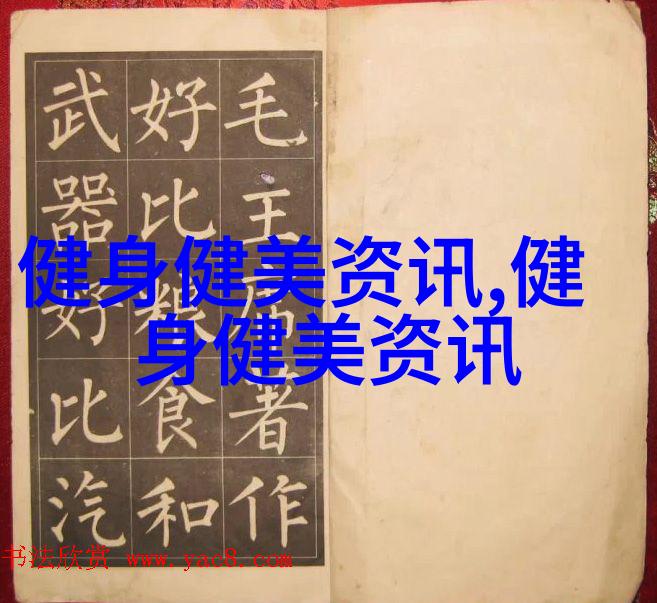 毛主席著作
好比粮食和
武器好比汽
健身健美资讯,健
身健美资讯
书法欣赏 www.yac8.com